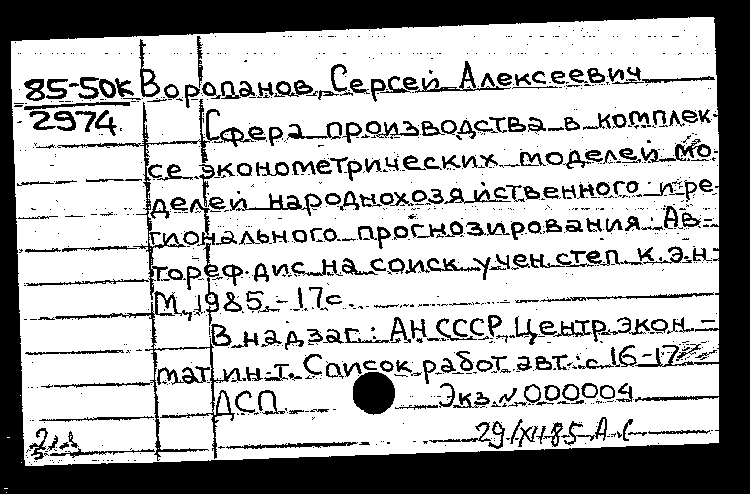 85-50к Воропанов, Сергей Алексеевич
2974 Сфера производства в комплек-
се эконометрических моделей мо-
делей народнохозяйственного и ре-
гионального прогнозирования: Ав-
тореф. дис. на соиск. учен. степ. к. э. н.
М., 1985. - 17с.
В надзаг.: АН СССР, Центр. экон. -
мат. ин-т. Список работ авт.: с. 16-17
ДСП. Экз. N 000004
29/XII 85 А.С